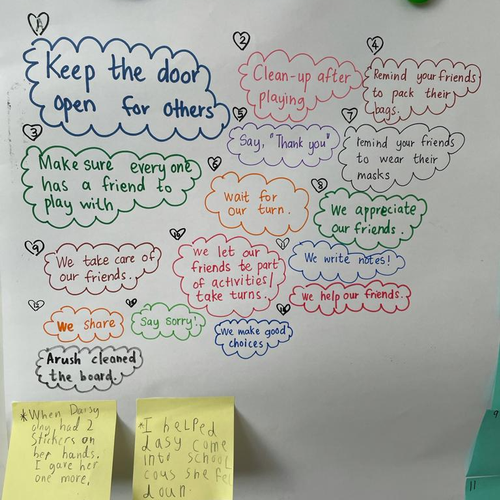 Keep the door
open for others
2
Clean-up after
playing
4
Remind your friends
to pack their
bags.
3
Make sure every one
has a friend to
play with
5
Say, "Thank you"
7
Remind your friends
to wear their
masks
6
wait for
our turn.
8
We appreciate
our friends.
9
We take care of
our friends.
we let our
friends be part
of activities/
take turns.
We write notes!
we help our friends.
We share
Say sorry!
We make good
choices
Arush cleaned
the board.
*When Daisy
only had 2
Stickers on
her hands.
I gave her
one more.
*I helped
dasy come
into school
cous she fel
doun.
11